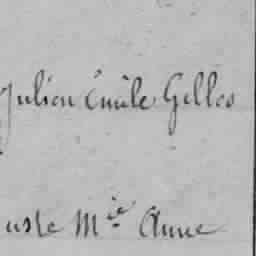 Julien Émile Gilles
uste Mie Anne